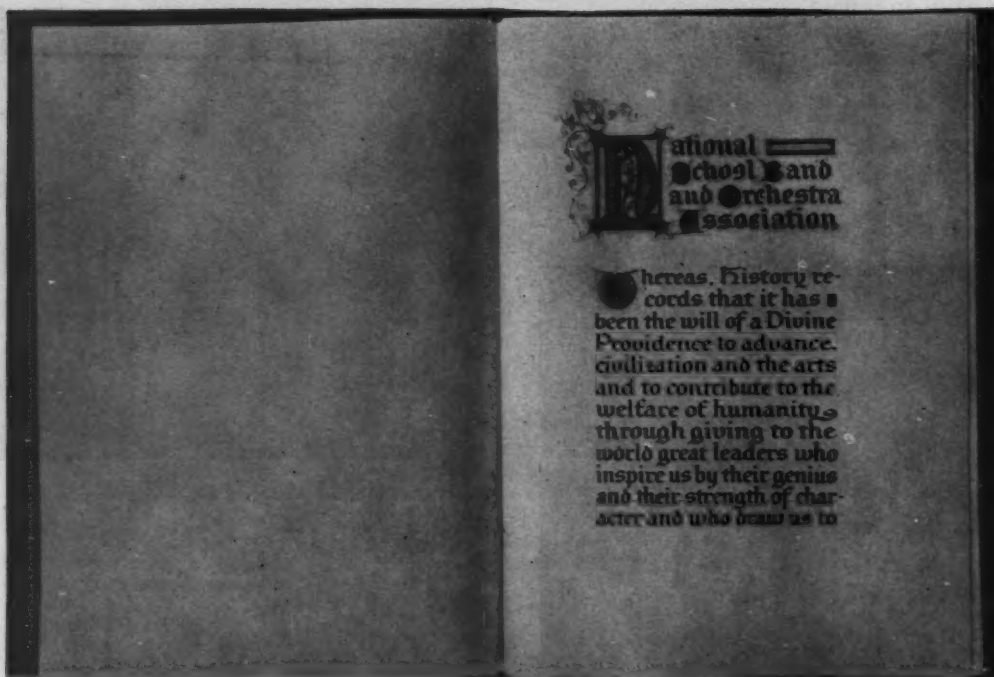 National
School Band
and Orchestra
Association
Whereas, History re-
cords that it has
been the will of a Divine
Providence to advance
civilization and the arts
and to contribute to the
welfare of humanity
through giving to the
world great leaders who
inspire us by their genius
and their strength of char-
acter and who draw us to